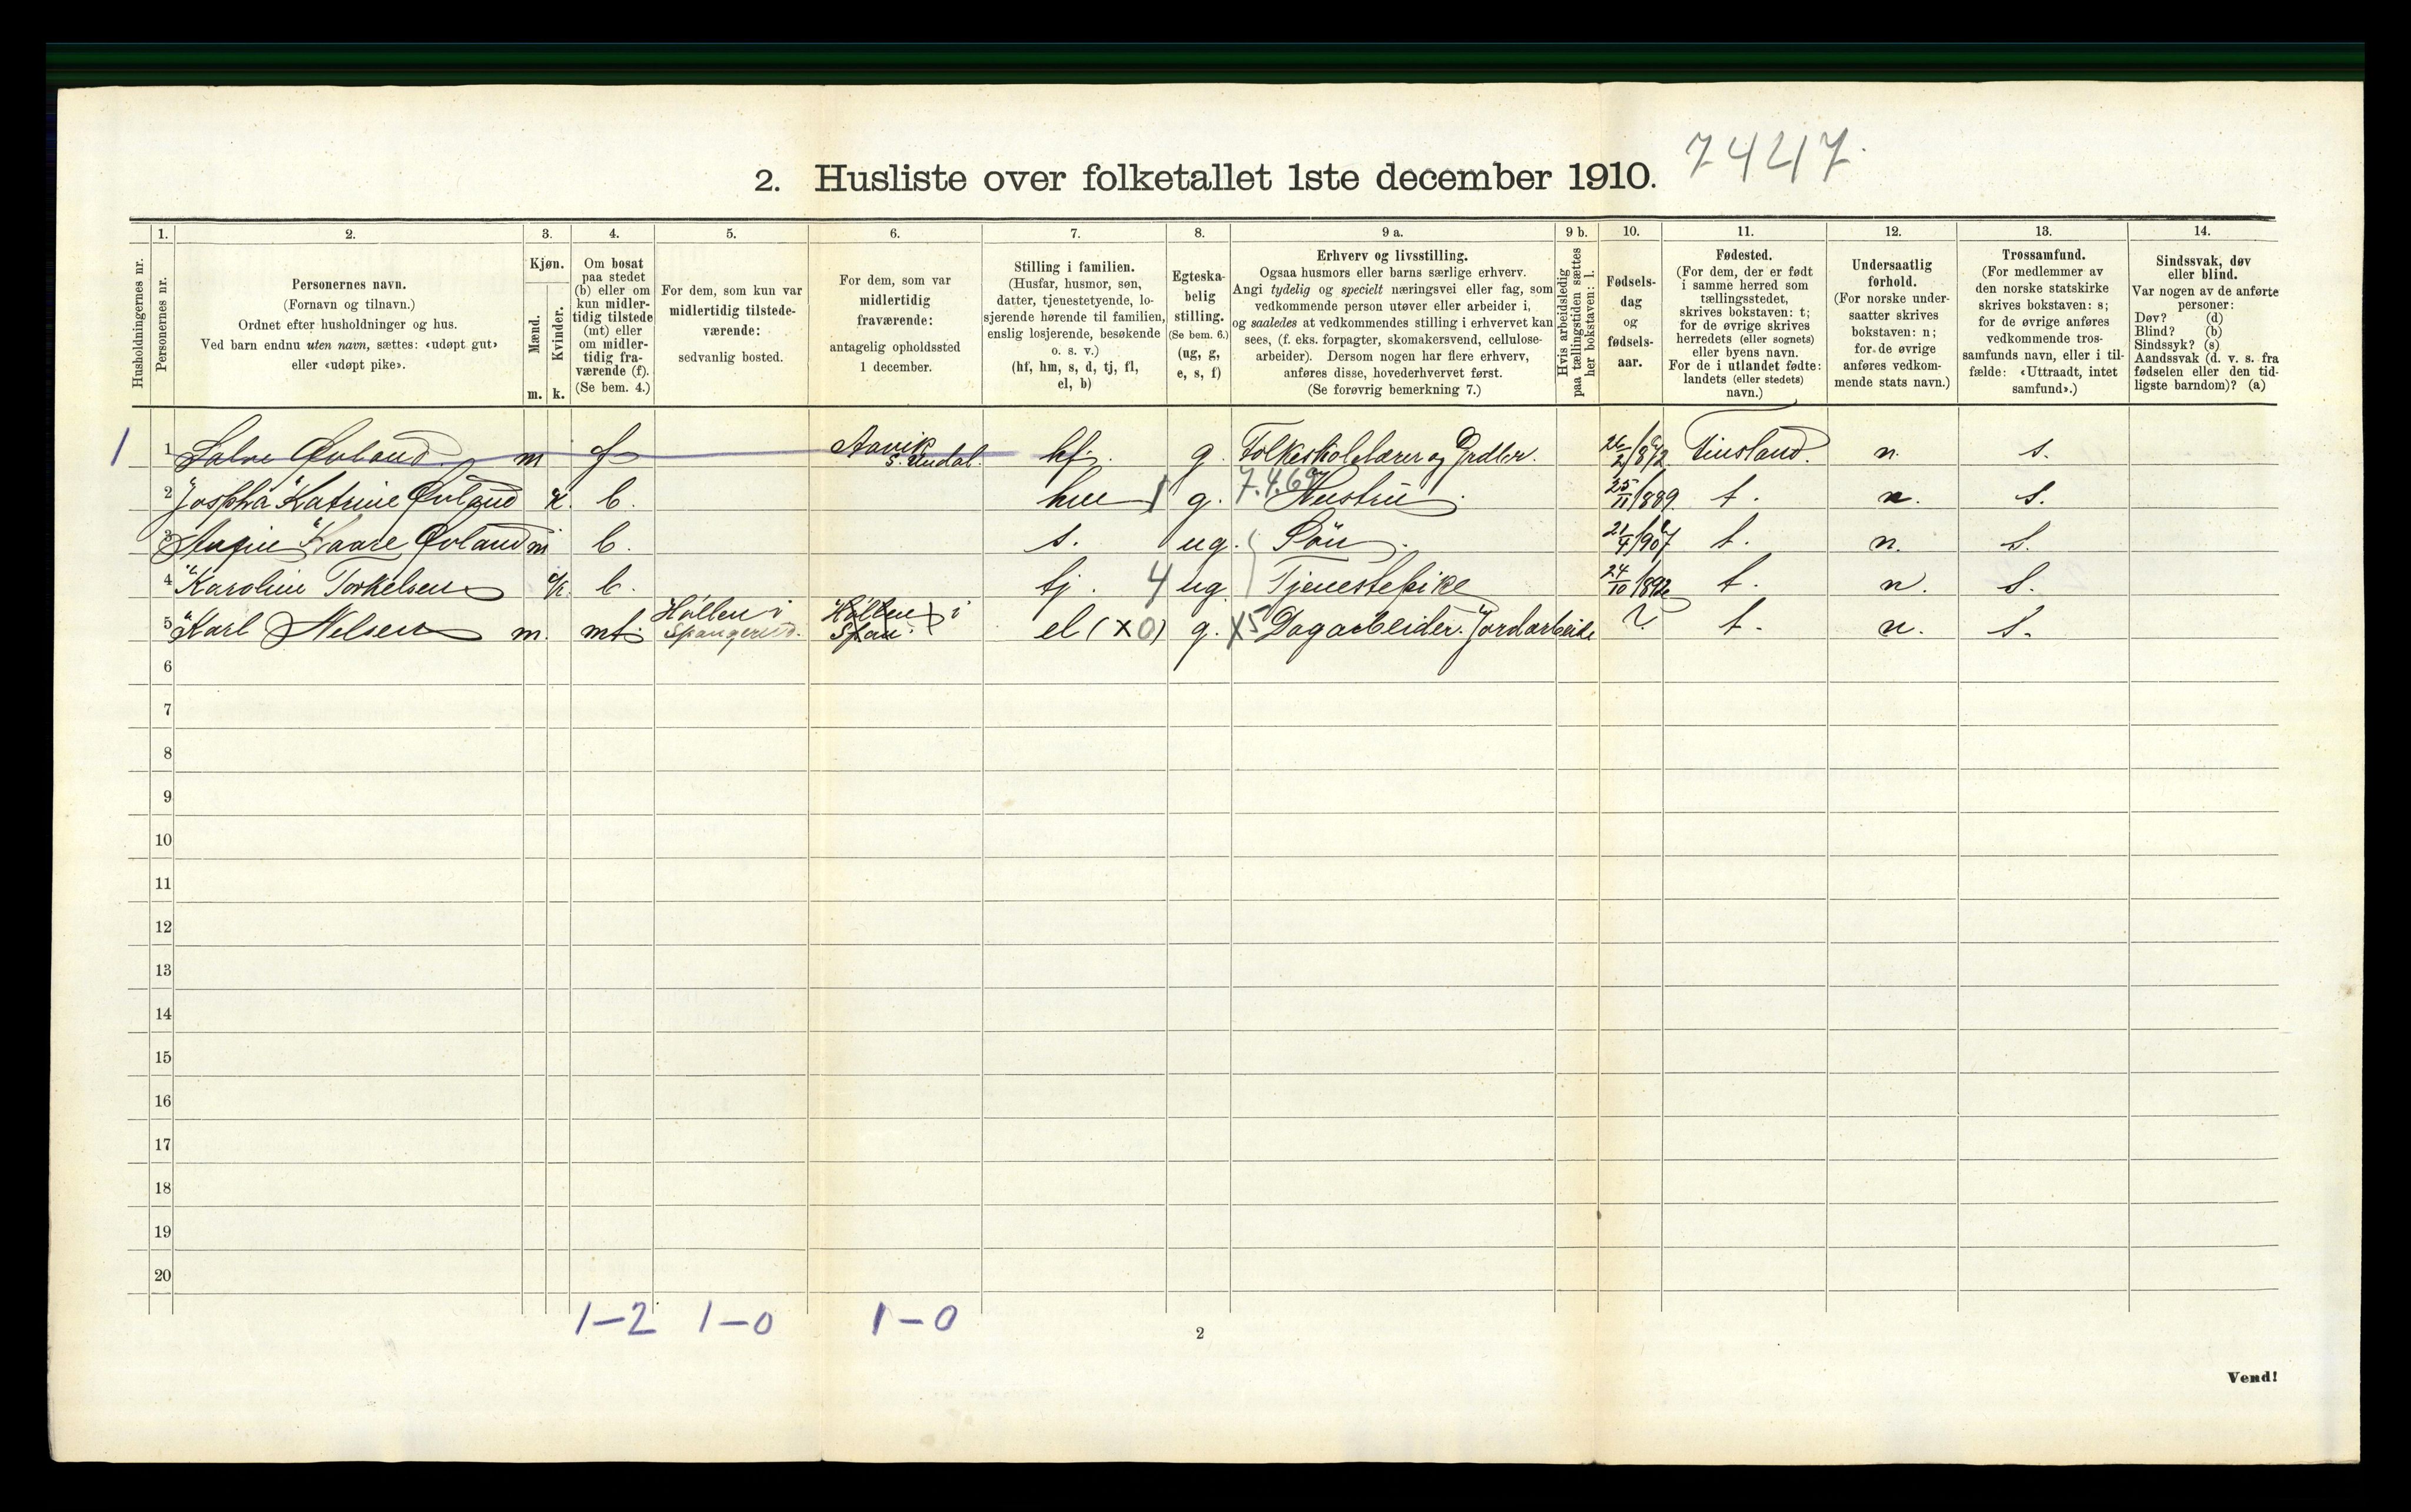 7447
2. Husliste over folketallet 1ste december 1910.
Husholdningernes nr.
1.
Personernes nr.
2.
Personernes navn.
(Fornavn og tilnavn.)
Ordnet efter husholdninger og hus.
Ved barn endnu uten navn, sættes: «udøpt gut»
eller «udøpt pike».
3.
Kjøn.
Mænd.
Kvinder.
m. k.
4.
Om bosat
paa stedet
(b) eller om
kun midler-
tidig tilstede
(mt) eller
om midler-
tidig fra-
værende (f).
(Se bem. 4.)
5.
For dem, som kun var
midlertidig tilstede-
værende:
sedvanlig bosted.
6.
For dem, som var
midlertidig
fraværende:
antagelig opholdssted
1 december.
7.
Stilling i familien.
(Husfar, husmor, søn,
datter, tjenestetyende, lo-
sjerende hørende til familien,
enslig losjerende, besøkende
o. s. v.)
(hf, hm, s, d, tj, fl,
el, b)
8.
Egteska-
belig
stilling.
(Se bem. 6.)
(ug, g,
e, s, f)
9 a.
Erhverv og livsstilling.
Ogsaa husmors eller barns særlige erhverv.
Angi tydelig og specielt næringsvei eller fag, som
vedkommende person utøver eller arbeider i,
og saaledes at vedkommendes stilling i erhvervet kan
sees, (f. eks. forpagter, skomakersvend, cellulose-
arbeider). Dersom nogen har flere erhverv,
anføres disse, hovederhvervet først.
(Se forøvrig bemerkning 7.)
9 b.
Hvis arbeidsledig
paa tællingstiden sættes
her bokstaven: l.
10.
Fødsels-
dag
og
fødsels-
aar.
11.
Fødested.
(For dem, der er født
i samme herred som
tællingsstedet,
skrives bokstaven: t;
for de øvrige skrives
herredets (eller sognets)
eller byens navn.
For de i utlandet fødte:
landets (eller stedets)
navn.)
12.
Undersaatlig
forhold.
(For norske under-
saatter skrives
bokstaven: n;
for de øvrige
anføres vedkom-
mende stats navn.)
13.
Trossamfund.
(For medlemmer av
den norske statskirke
skrives bokstaven: s;
for de øvrige anføres
vedkommende tros-
samfunds navn, eller i til-
fælde: «Uttraadt, intet
samfund».)
14.
Sindssvak, døv
eller blind.
Var nogen av de anførte
personer:
Døv? (d)
Blind? (b)
Sindssyk? (s)
Aandssvak (d. v. s. fra
fødselen eller den tid-
ligste barndom)? (a)
1 1 Salve Øvland m f Aavik S. Undal. hf. g. Folkeskolelærer og Grdbr. 26/2 1872 Finsland. n. s.
2 Katrine Øvland k. b. 1 g. 7.4.69 Hustru. 25/11 1889. t. n. s.
3 Kaare Øvland m b. s. ug. Søn. 21/4 1907 t. n. s.
4 Karoline Torkelsen k. b. tj. 4 ug. Tjenestepike 24/10 1892 t. n. s.
5 Karl Nelsen m. mt Hollen i Spangereid. Hollen i Span. el (x0) g. x5 Dagarbeider. Jordarbeide ? t. n. s.
6
7
8
9
10
11
12
13
14
15
16
17
18
19
20
1-2 1-0 1-0
2
Vend!